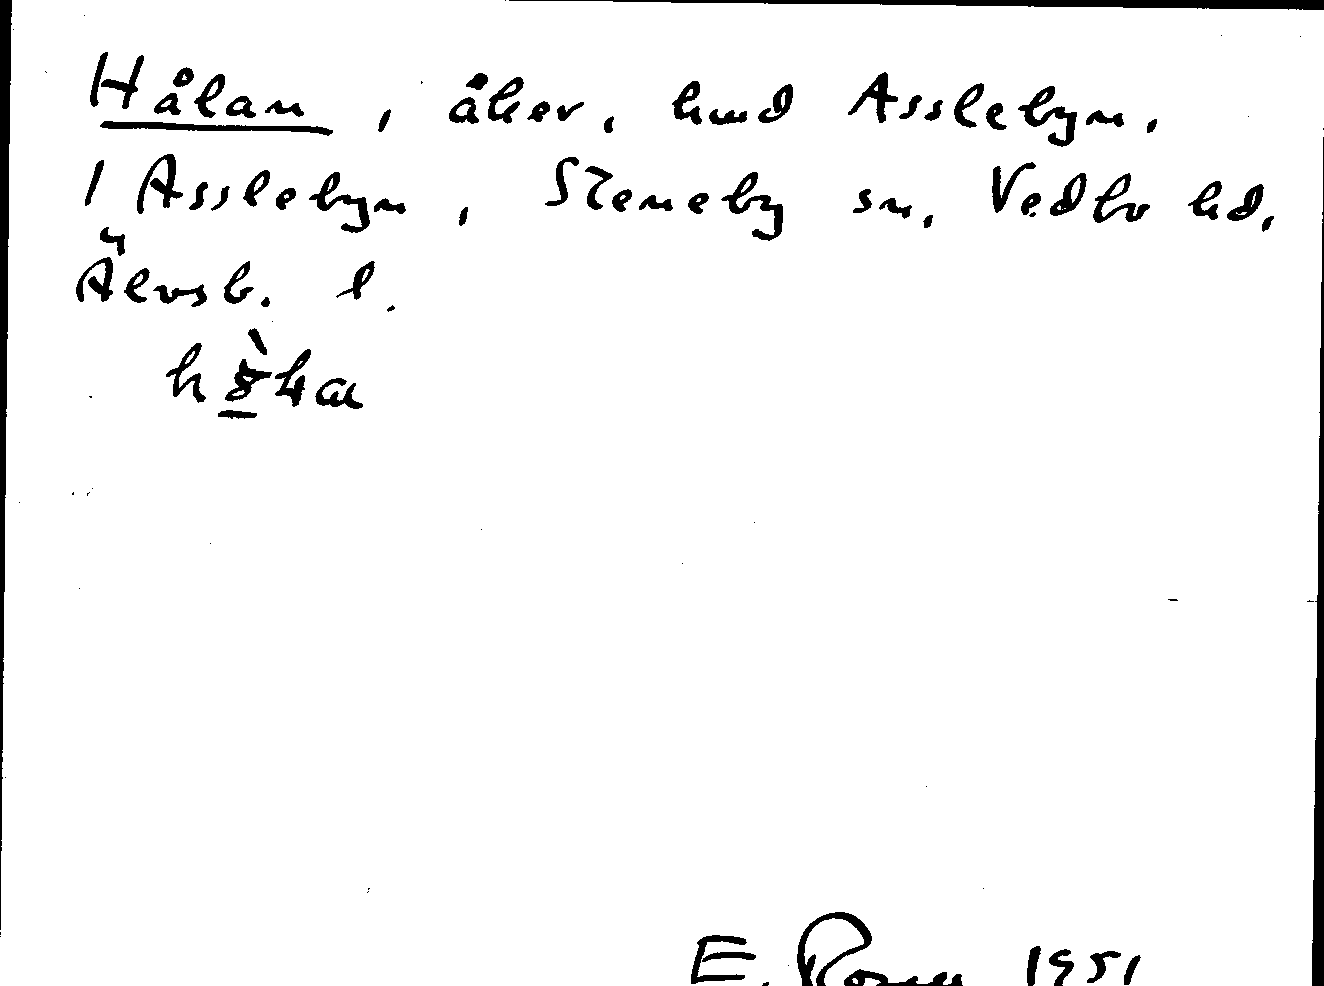 Hålan, åker, hmd Asslebyn.
1 Asslebyn, Steneby sn, Vedbo hd,
Älvsb. l.
E. 1951